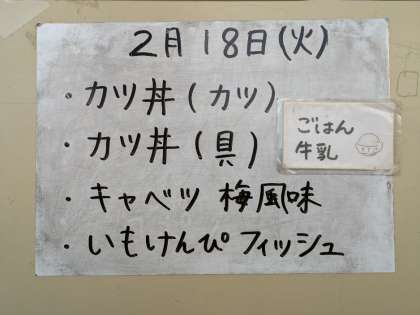 2月18日(火)
・カツ丼(カツ)
・カツ丼(具)
・キャベツ 梅風味
・いもけんぴフィッシュ
ごはん
牛乳